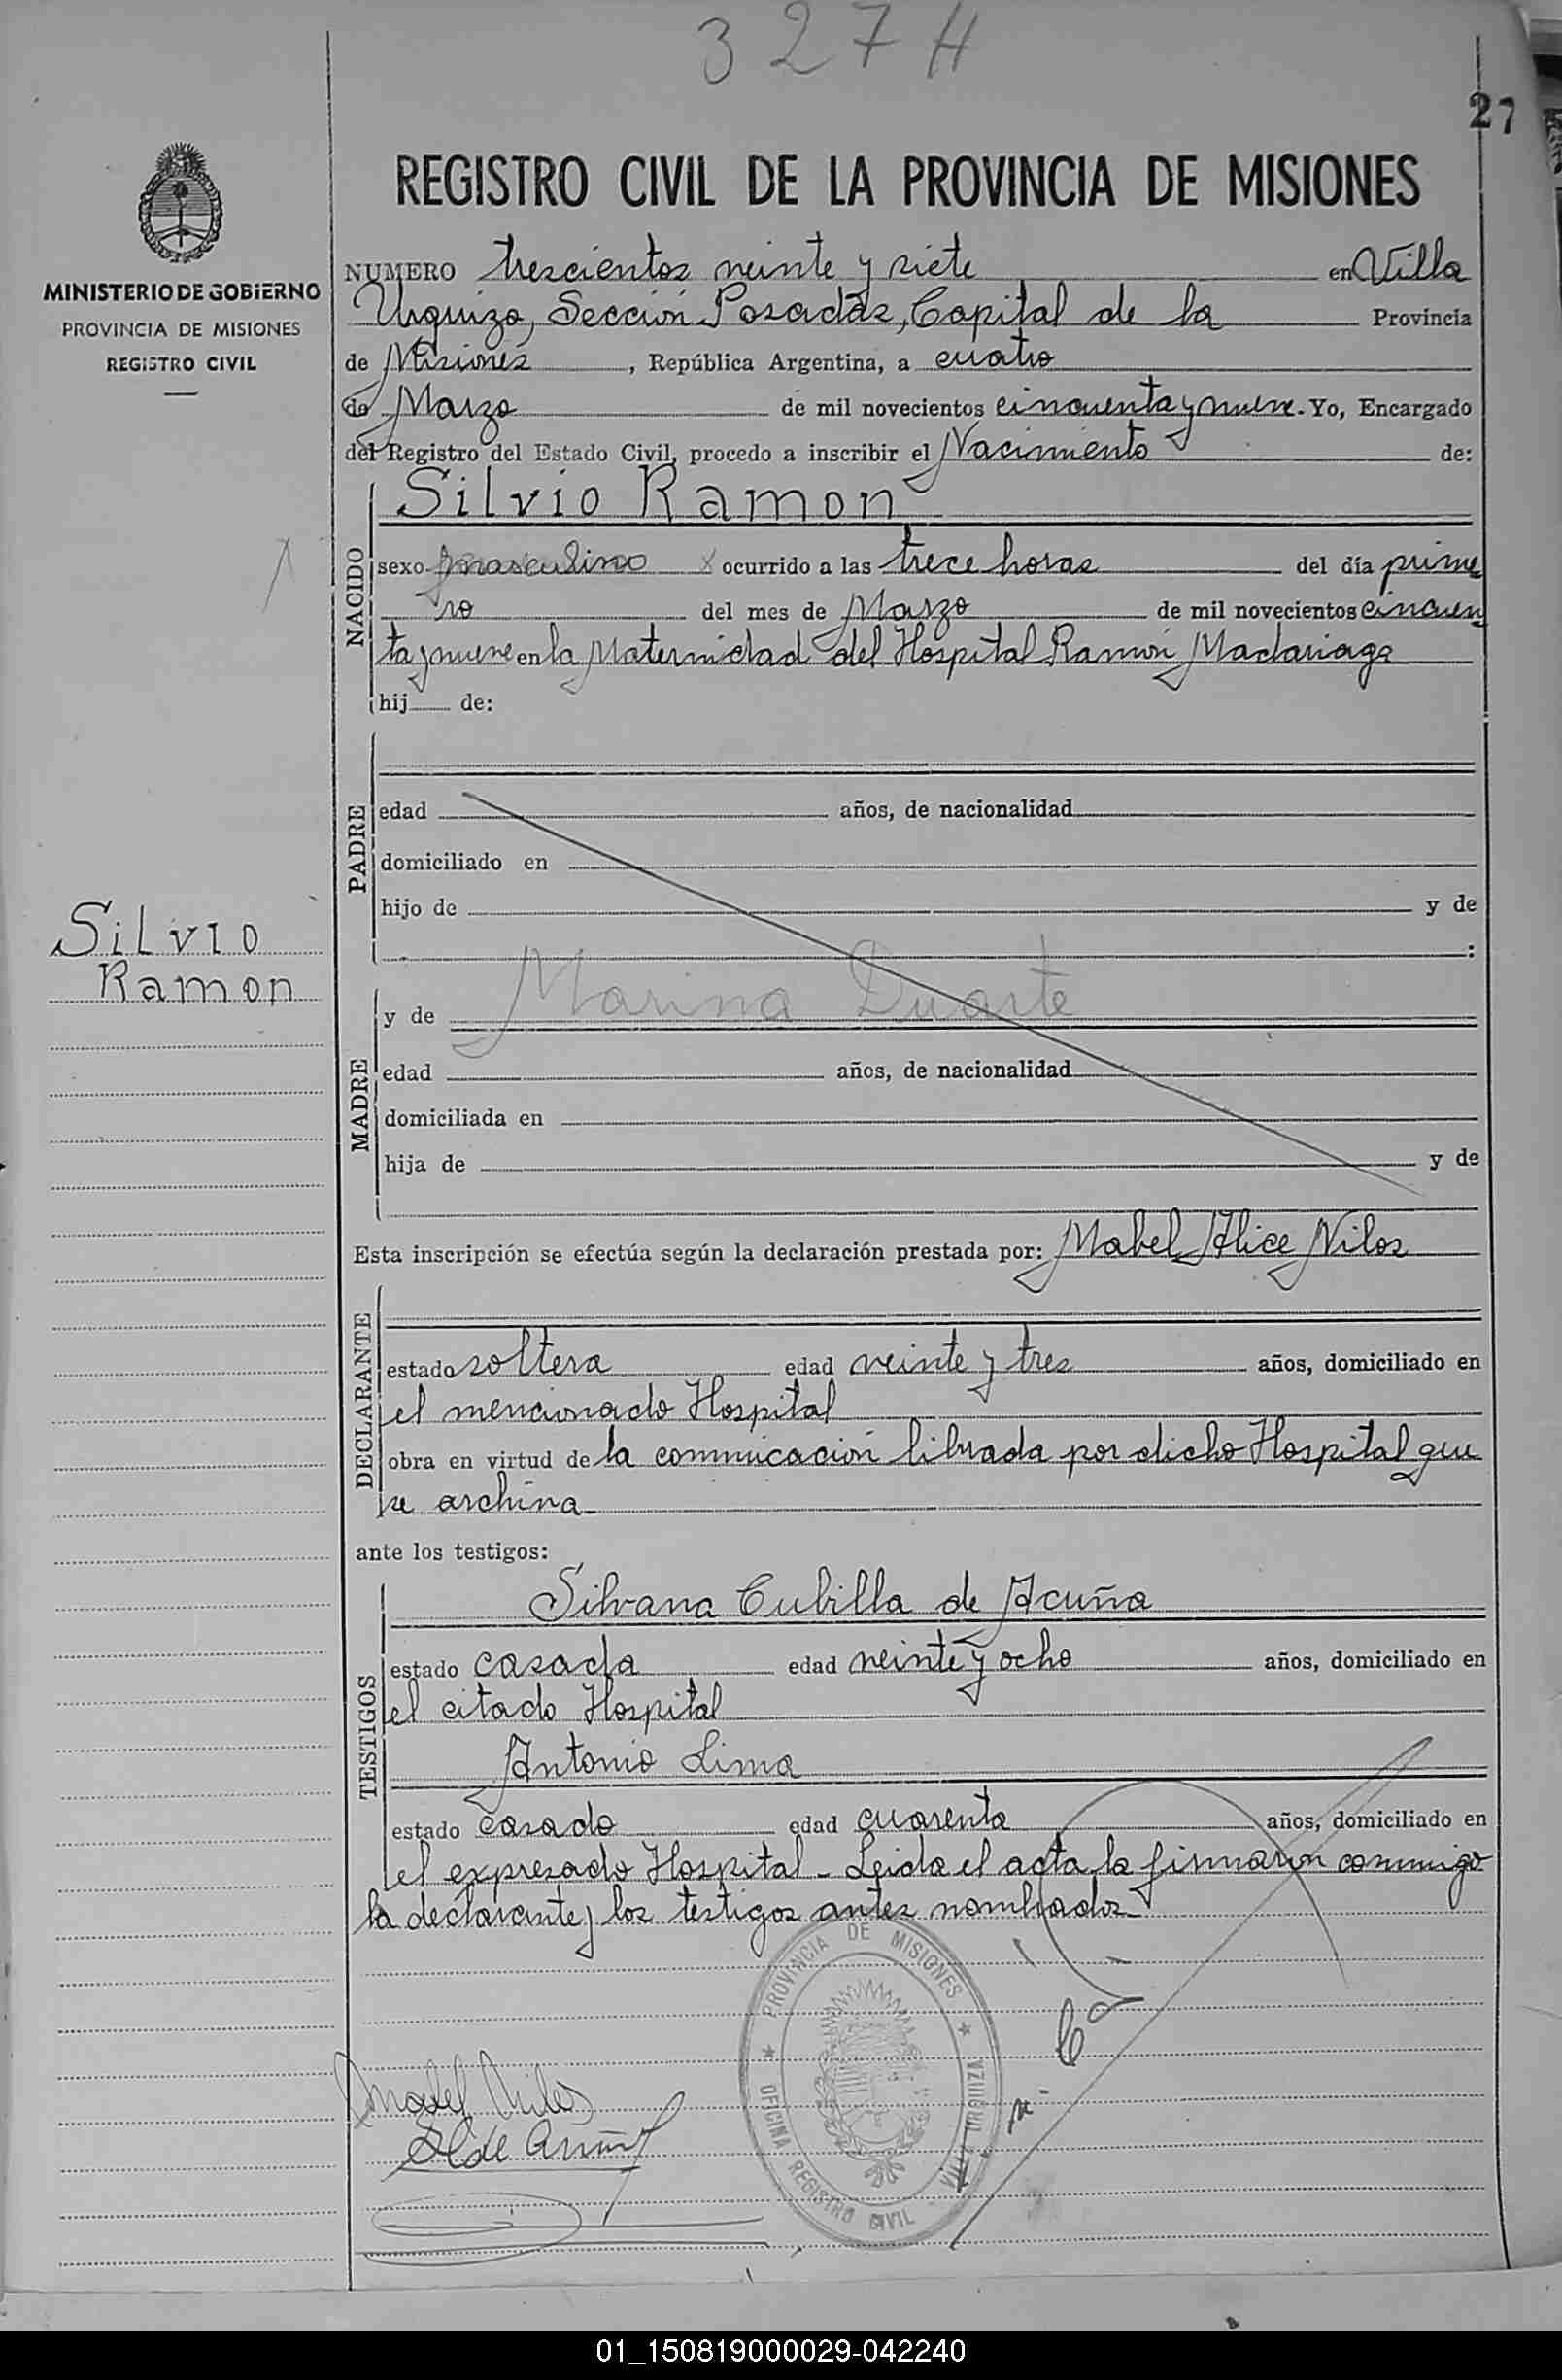 327 H
27
MINISTERIO DE GOBIERNO
PROVINCIA DE MISIONES
REGISTRO CIVIL
REGISTRO CIVIL DE LA PROVINCIA DE MISIONES
NUMERO trescientos veinte y siete en Villa
Urquiza, Sección Posadas, Capital de la Provincia
de Misiones, República Argentina, a cuatro
de Marzo de mil novecientos cincuenta y nueve. Yo, Encargado
del Registro del Estado Civil, procedo a inscribir el Nacimiento de:
NACIDO
Silvio Ramon
sexo masculino x ocurrido a las trece horas del día prime
ro del mes de Marzo de mil novecientos cincuen
ta y nueve en la Maternidad del Hospital Ramón Madariaga
hij de:
PADRE
edad años, de nacionalidad
domiciliado en
hijo de y de
:
Silvio
Ramon
MADRE
y de Marina Duarte
edad años, de nacionalidad
domiciliada en
hija de y de
Esta inscripción se efectúa según la declaración prestada por: Mabel Alice Niloz
DECLARANTE
estado soltera edad veinte y tres años, domiciliado en
el mencionado Hospital
obra en virtud de la comunicación librada por dicho Hospital que
se archiva
ante los testigos:
TESTIGOS
Silvana Cubilla de Acuña
estado casada edad veinte y ocho años, domiciliado en
el citado Hospital
Antonio Lima
estado casado edad cuarenta años, domiciliado en
el expresado Hospital - Leida el acta la firmaron conmigo
la declarante y los testigos antes nombrados
PROVINCIA DE MISIONES
OFICINA REGISTRO CIVIL VILLA URQUIZA
S C de Acuña
01_150819000029-042240